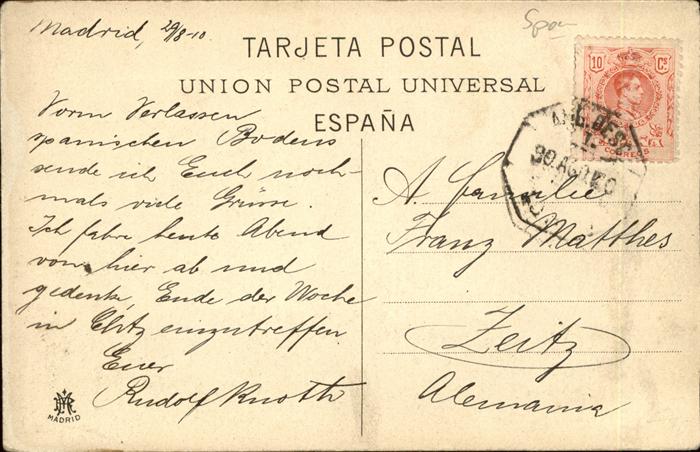 Madrid, 29/8-10
Span
TARJETA POSTAL
UNION POSTAL UNIVERSAL
ESPAÑA
10 Cs
CORREOS
30.AGO.10
Vorm Verlassen
spanischen Bodens
sende ich Euch noch-
mals viele Grüsse.
Ich fahre heute Abend
von hier ab und
gedenke, Ende der Woche
in einzutreffen
Euer
Rudolf Knoth
MADRID
A. familie
Franz Matthes
Zeitz
Alemania